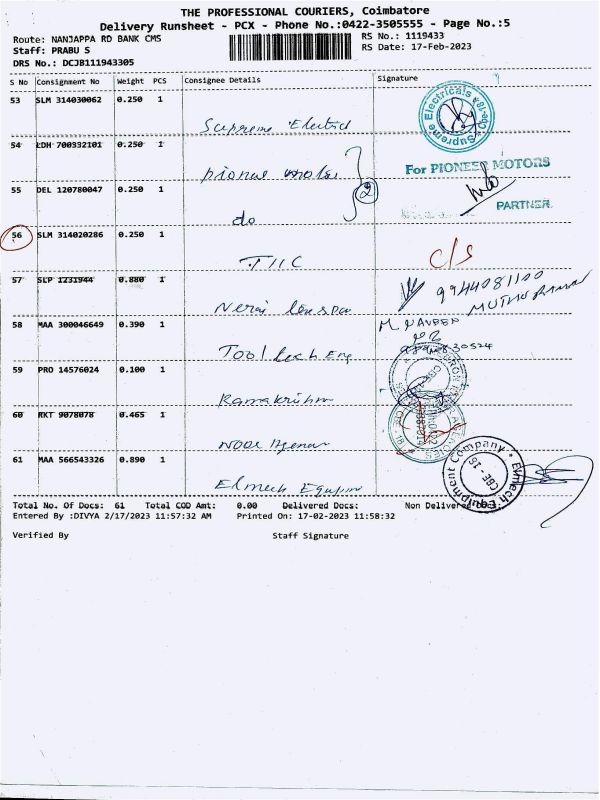 THE PROFESSIONAL COURIERS, Coimbatore
Delivery Runsheet - PCX - Phone No.:0422-3505555 - Page No.:5
Route: NANJAPPA RD BANK CMS
RS No.: 1119433
Staff: PRABU S
RS Date: 17-Feb-2023
DRS No.: DCJB111943305
S No Consignment No Weight PCS Consignee Details Signature
53 SLM 314030062 0.250 1
Supreme Electricals * Cbe-18 *
Supreme Electrical
54 LDH 700332101 0.250 1
For PIONEER MOTORS
55 DEL 120780047 0.250 1
2
PARTNER
do
56 SLM 314020286 0.250 1
C/S
TIIC
57 SLP 1231944 0.880 1
9944081100
MUTHU RAMAN
58 MAA 300046649 0.390 1
M. NAVEEN
Tool tech Eng
59 PRO 14576024 0.100 1
Ramakrishna
60 RKT 9078078 0.465 1
61 MAA 566543326 0.890 1
Elmech Equipment Company *
CBE - 18
Elmech Equipm
Total No. Of Docs: 61 Total COD Amt: 0.00 Delivered Docs: Non Delivered
Entered By :DIVYA 2/17/2023 11:57:32 AM Printed On: 17-02-2023 11:58:32
Verified By Staff Signature